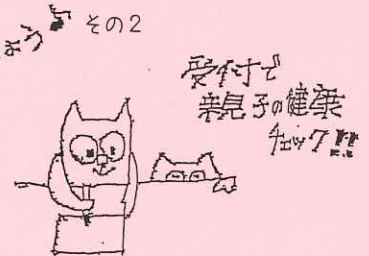 その2
受付で
親子の健康
チェック!!